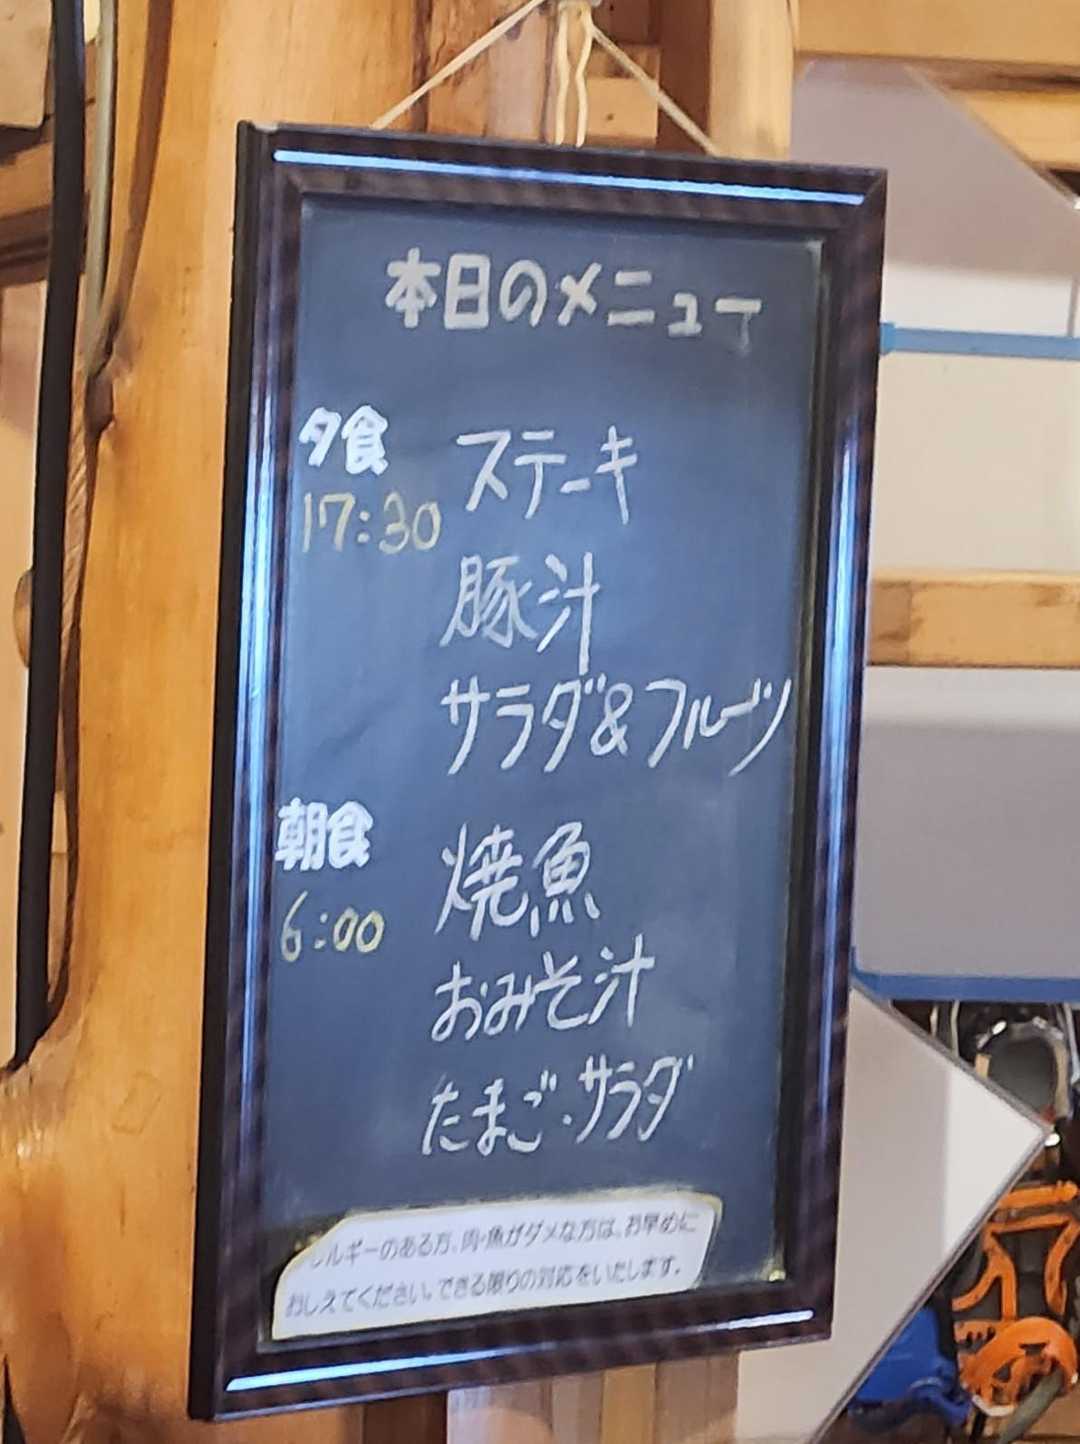 本日のメニュー
夕食
17:30
ステーキ
豚汁
サラダ&フルーツ
朝食
6:00
焼魚
おみそ汁
たまご・サラダ
レルギーのある方、肉・魚がダメな方は、お早めに
おしえてください。できる限りの対応をいたします。